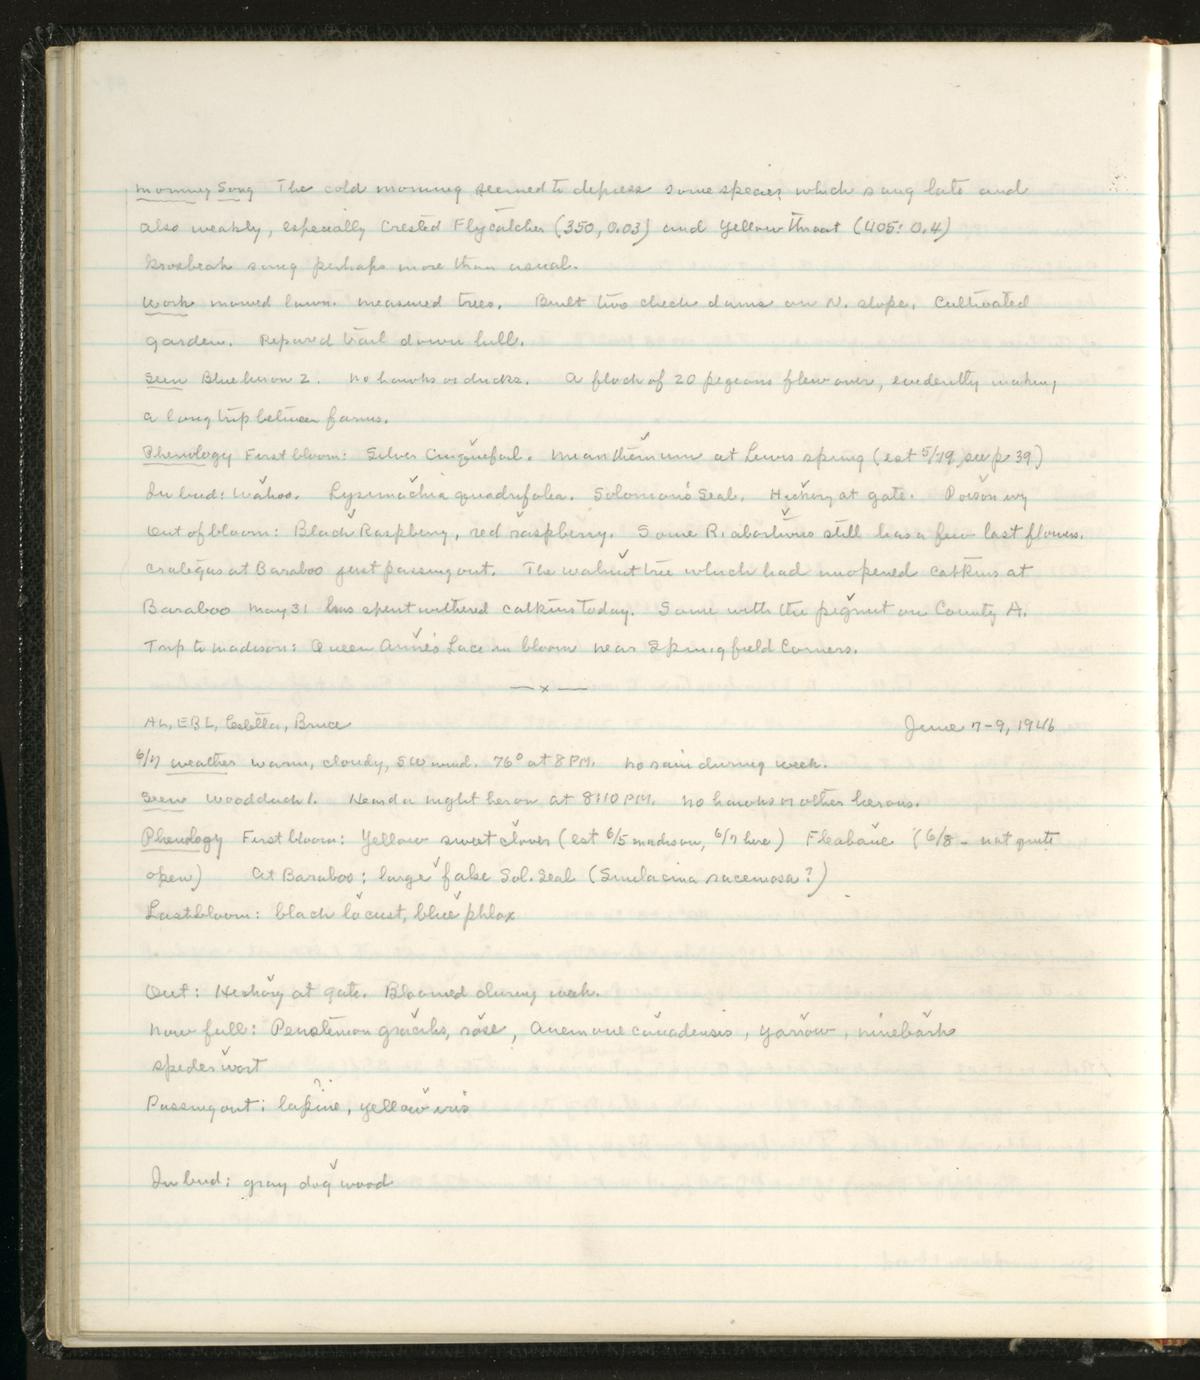 Morning Song The cold morning seemed to depress some species which sang late and
also weakly, especially Crested Flycatcher (350, 0.03) and Yellowthroat (405: 0.4)
Grosbeak sang perhaps more than usual.
Work mowed lawn. Measured trees. Built two check dams on N. slope. Cultivated
garden. Repaired trail down hill.
Seen Blue heron 2. No hawks or ducks. A flock of 20 pigeons flew over, evidently making
a long trip between farms.
Phenology First bloom: Silver Cinquefoil. Mianthemum at Lewis spring (est 5/19, see p 39)
In bud: Wahoo. Lysimachia quadrifolia. Solomon's Seal. Hickory at gate. Poison ivy
Out of bloom: Black Raspberry, red raspberry. Some R. abortivus still has a few last flowers.
Crategus at Baraboo just passing out. The walnut tree which had unopened catkins at
Baraboo May 31 has spent withered catkins today. Same with the pignut on County A.
Trip to Madison: Queen Anne's Lace in bloom near Springfield Corners.
—x—
AL, EBL, Estella, Bruce June 7-9, 1946
6/7 weather warm, cloudy, SW wind. 76° at 8 PM. No rain during week.
Seen Woodduck 1. Heard a night heron at 8:10 PM. No hawks or other herons.
Phenology First bloom: Yellow sweet clover (est 6/5 Madison, 6/7 here) Fleabane (6/8 - not quite
open) At Baraboo: large false Sol. Seal (Smilacina racemosa?)
Last bloom: black locust, blue phlox
Out: Hickory at gate. Bloomed during week.
Now full: Penstemon gracilis, rose, Anemone canadensis, yarrow, ninebark
spiderwort
Passing out: lupine, yellow iris
?
In bud: gray dogwood